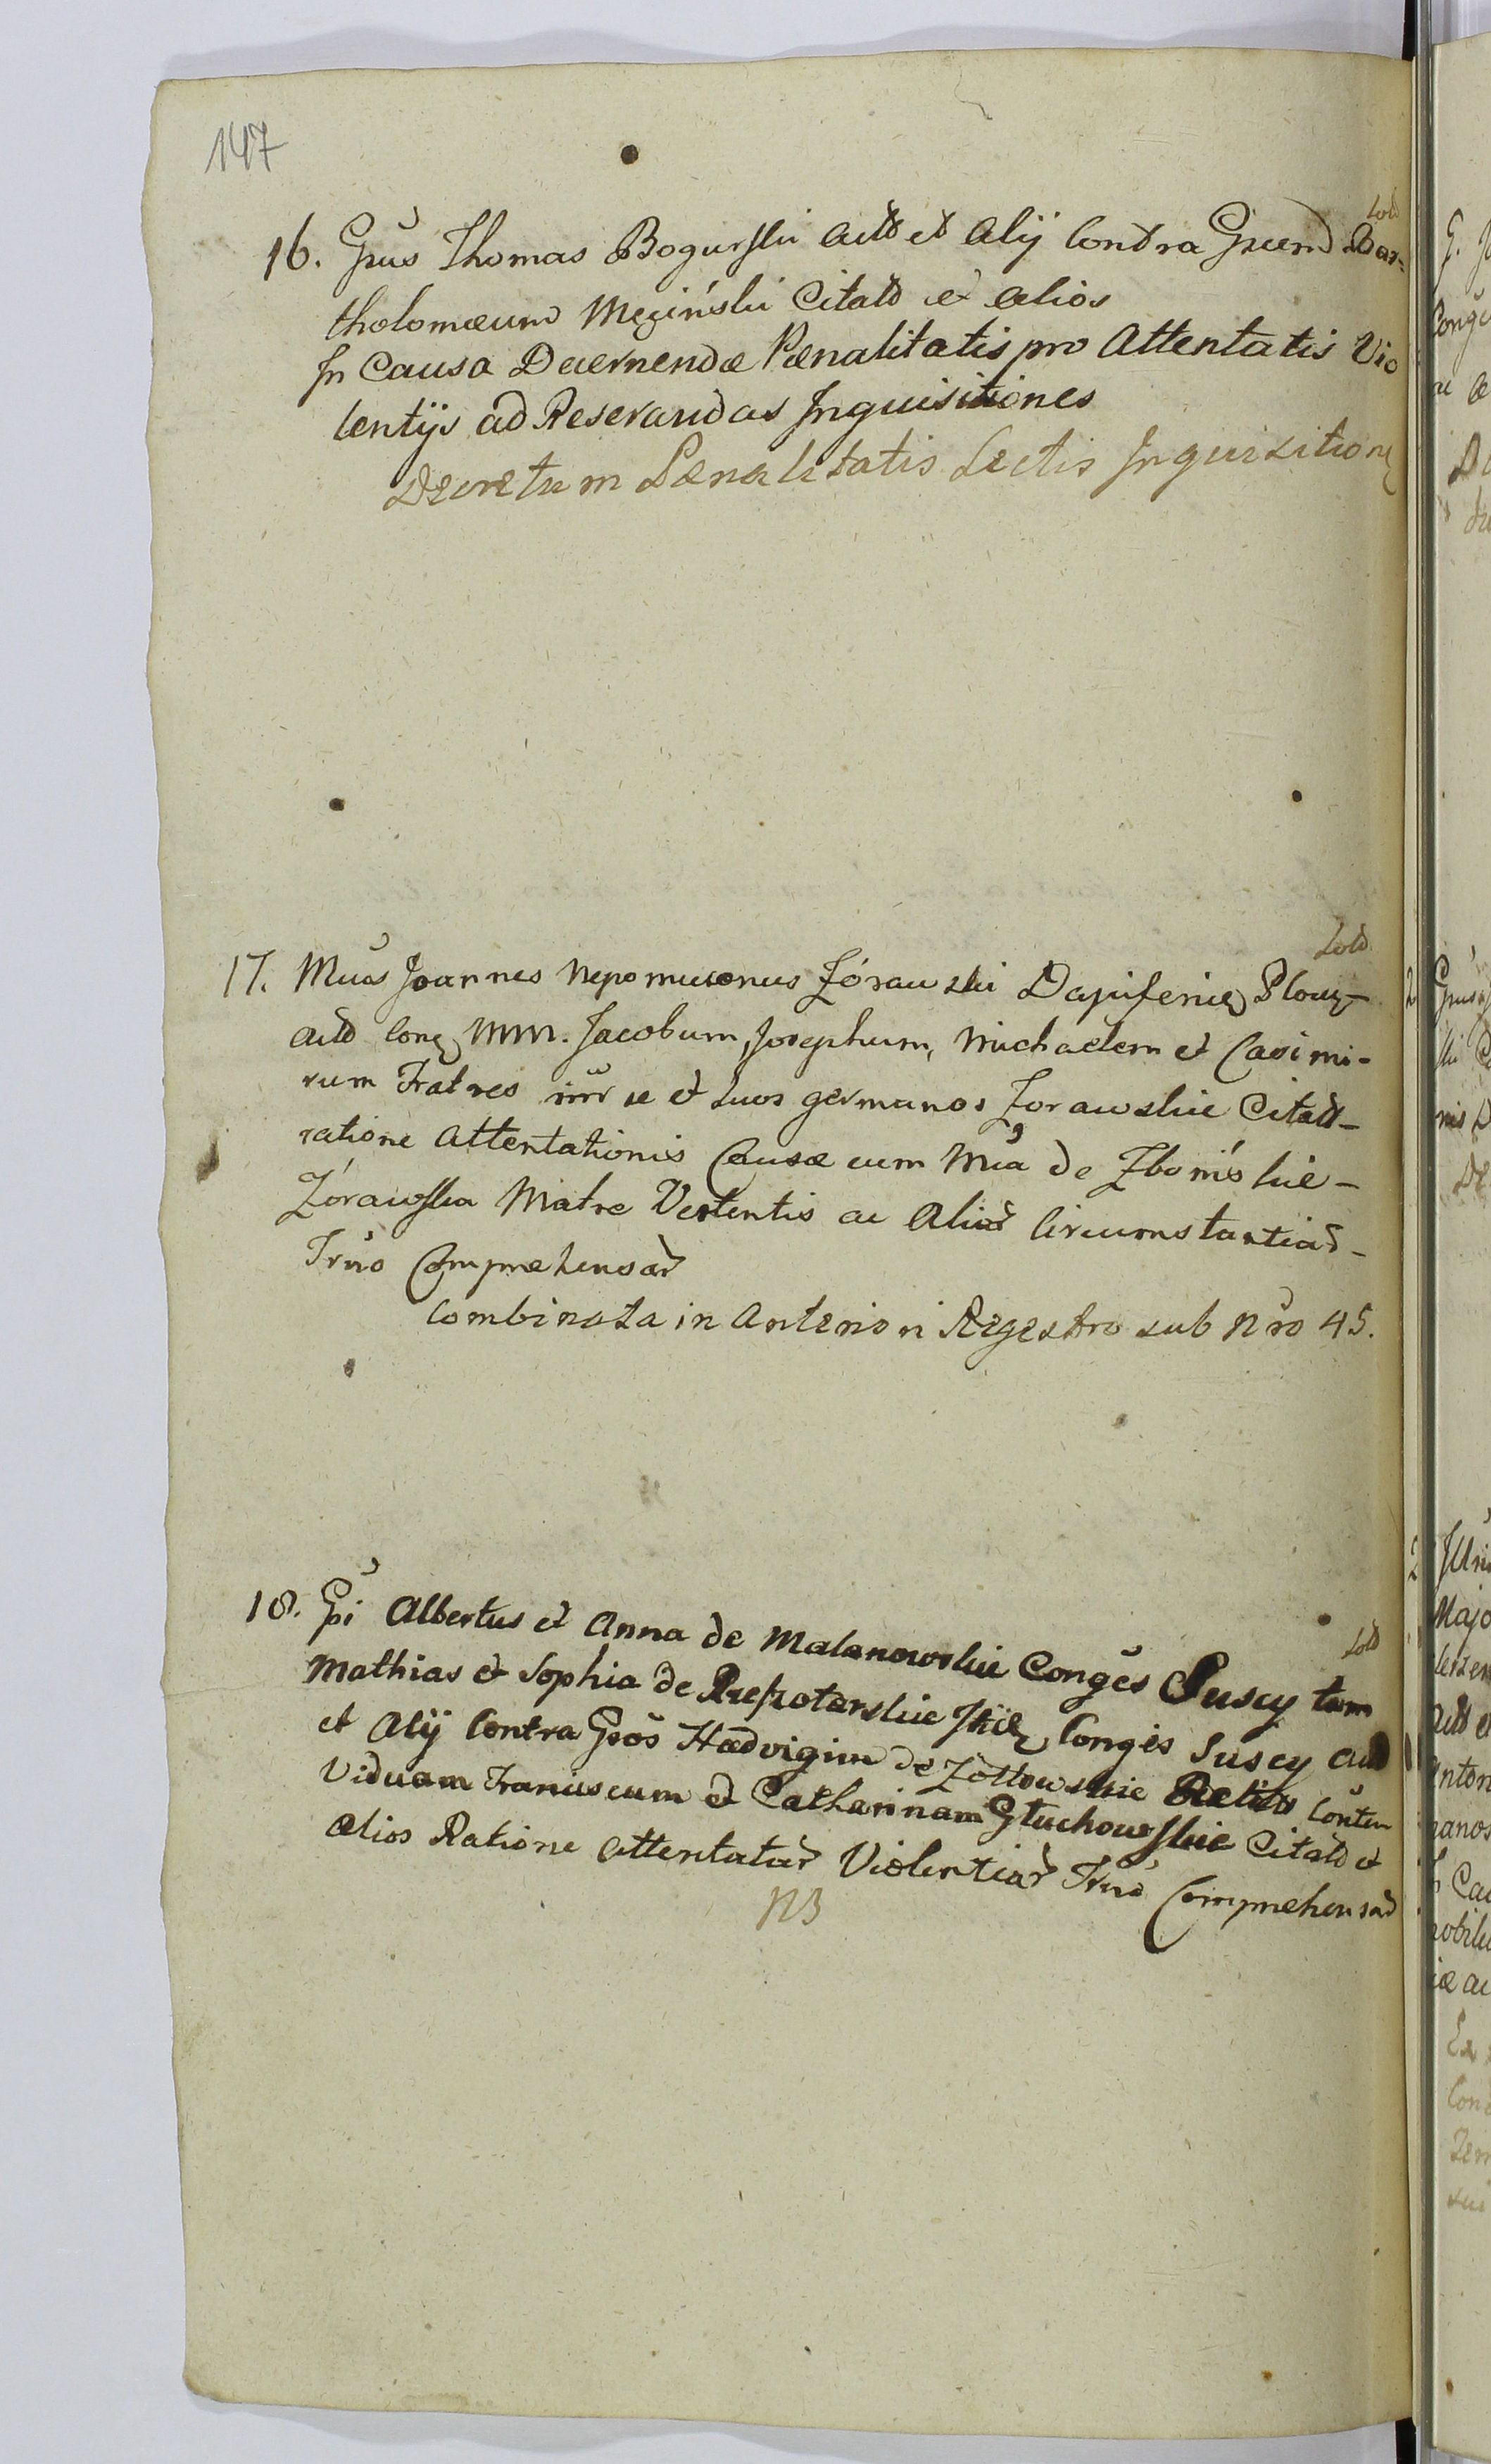 147
Sold
16. Gnus Thomas Bogurski Actt et Alij Contra Gnum Bar-
tholomæum Męziński Citatt et alios
In Causa Decernendæ Pænalitatis pro Attentatis Vio
lentijs ad Reserandas Inquisitiones
Decretum Pænalitatis Lectis Inquisitionę
Sold
17. Mus Joannes Nepomucenus Zórawski Dapiferię Plonę-
actt conę MM. Jacobum, Josephum, Michaelem et Casimi-
rum Fratres inr se et suos germanos Zorawskie Citatt-
ratione Attentationis Causæ cum Ma de Zbonískie-
Zórawska Matre Vertentis ac Aliar Circumstantiar-
Trno Comprehensar
Combinata in Anteriori Regestro sub Nro 45.
Sold
18. Gi Albertus et Anna de Malanowskie Conges Suscy tum
Mathias et Sophia de Conges Suscy Actt
et Alij Contra Gsos Hædvigim de Zółtowskie
Viduam Franciscum et Catharinam Głuchowskie Citatt et
alios Ratione Attentatar Violentiar Trno Comprehensar
NB